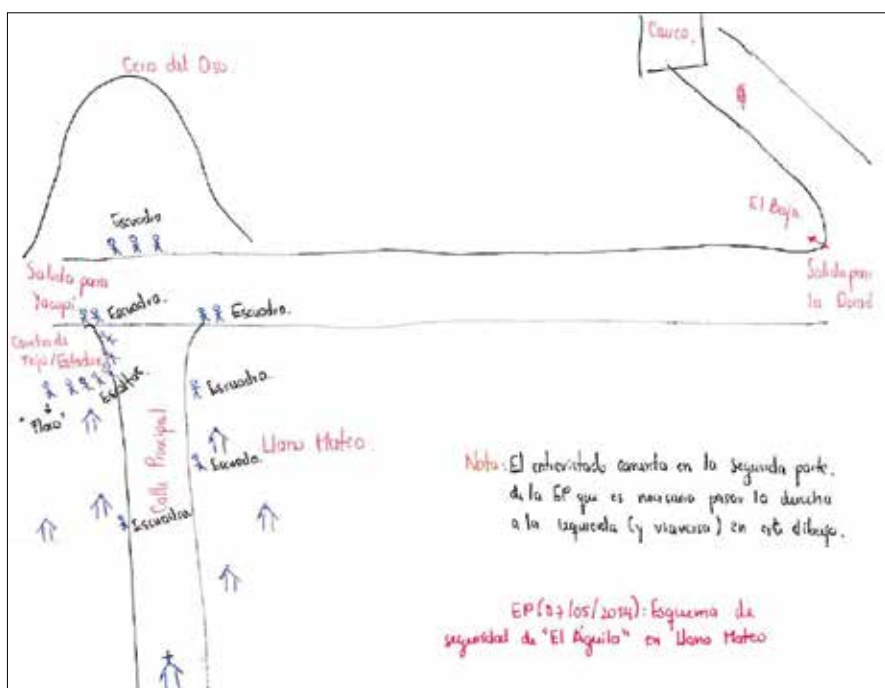 Cauca.
Cerro del Oso.
El Bajo
Escuadra
Salida para
Yacopí
Salida para
la Dorad
Escuadra.
Escuadra.
Cancha de
Tejo/Estadero
Escoltas
"Flaco"
Escuadra
Calle Principal
Llano Mateo.
Escuadra.
Escuadra
Nota: El entrevistado comenta en la segunda parte
de la EP que es necesario pasar la derecha
a la izquierda (y viceversa) en este dibujo.
EP (07/05/2014): Esquema de
seguridad de "El Águila" en Llano Mateo